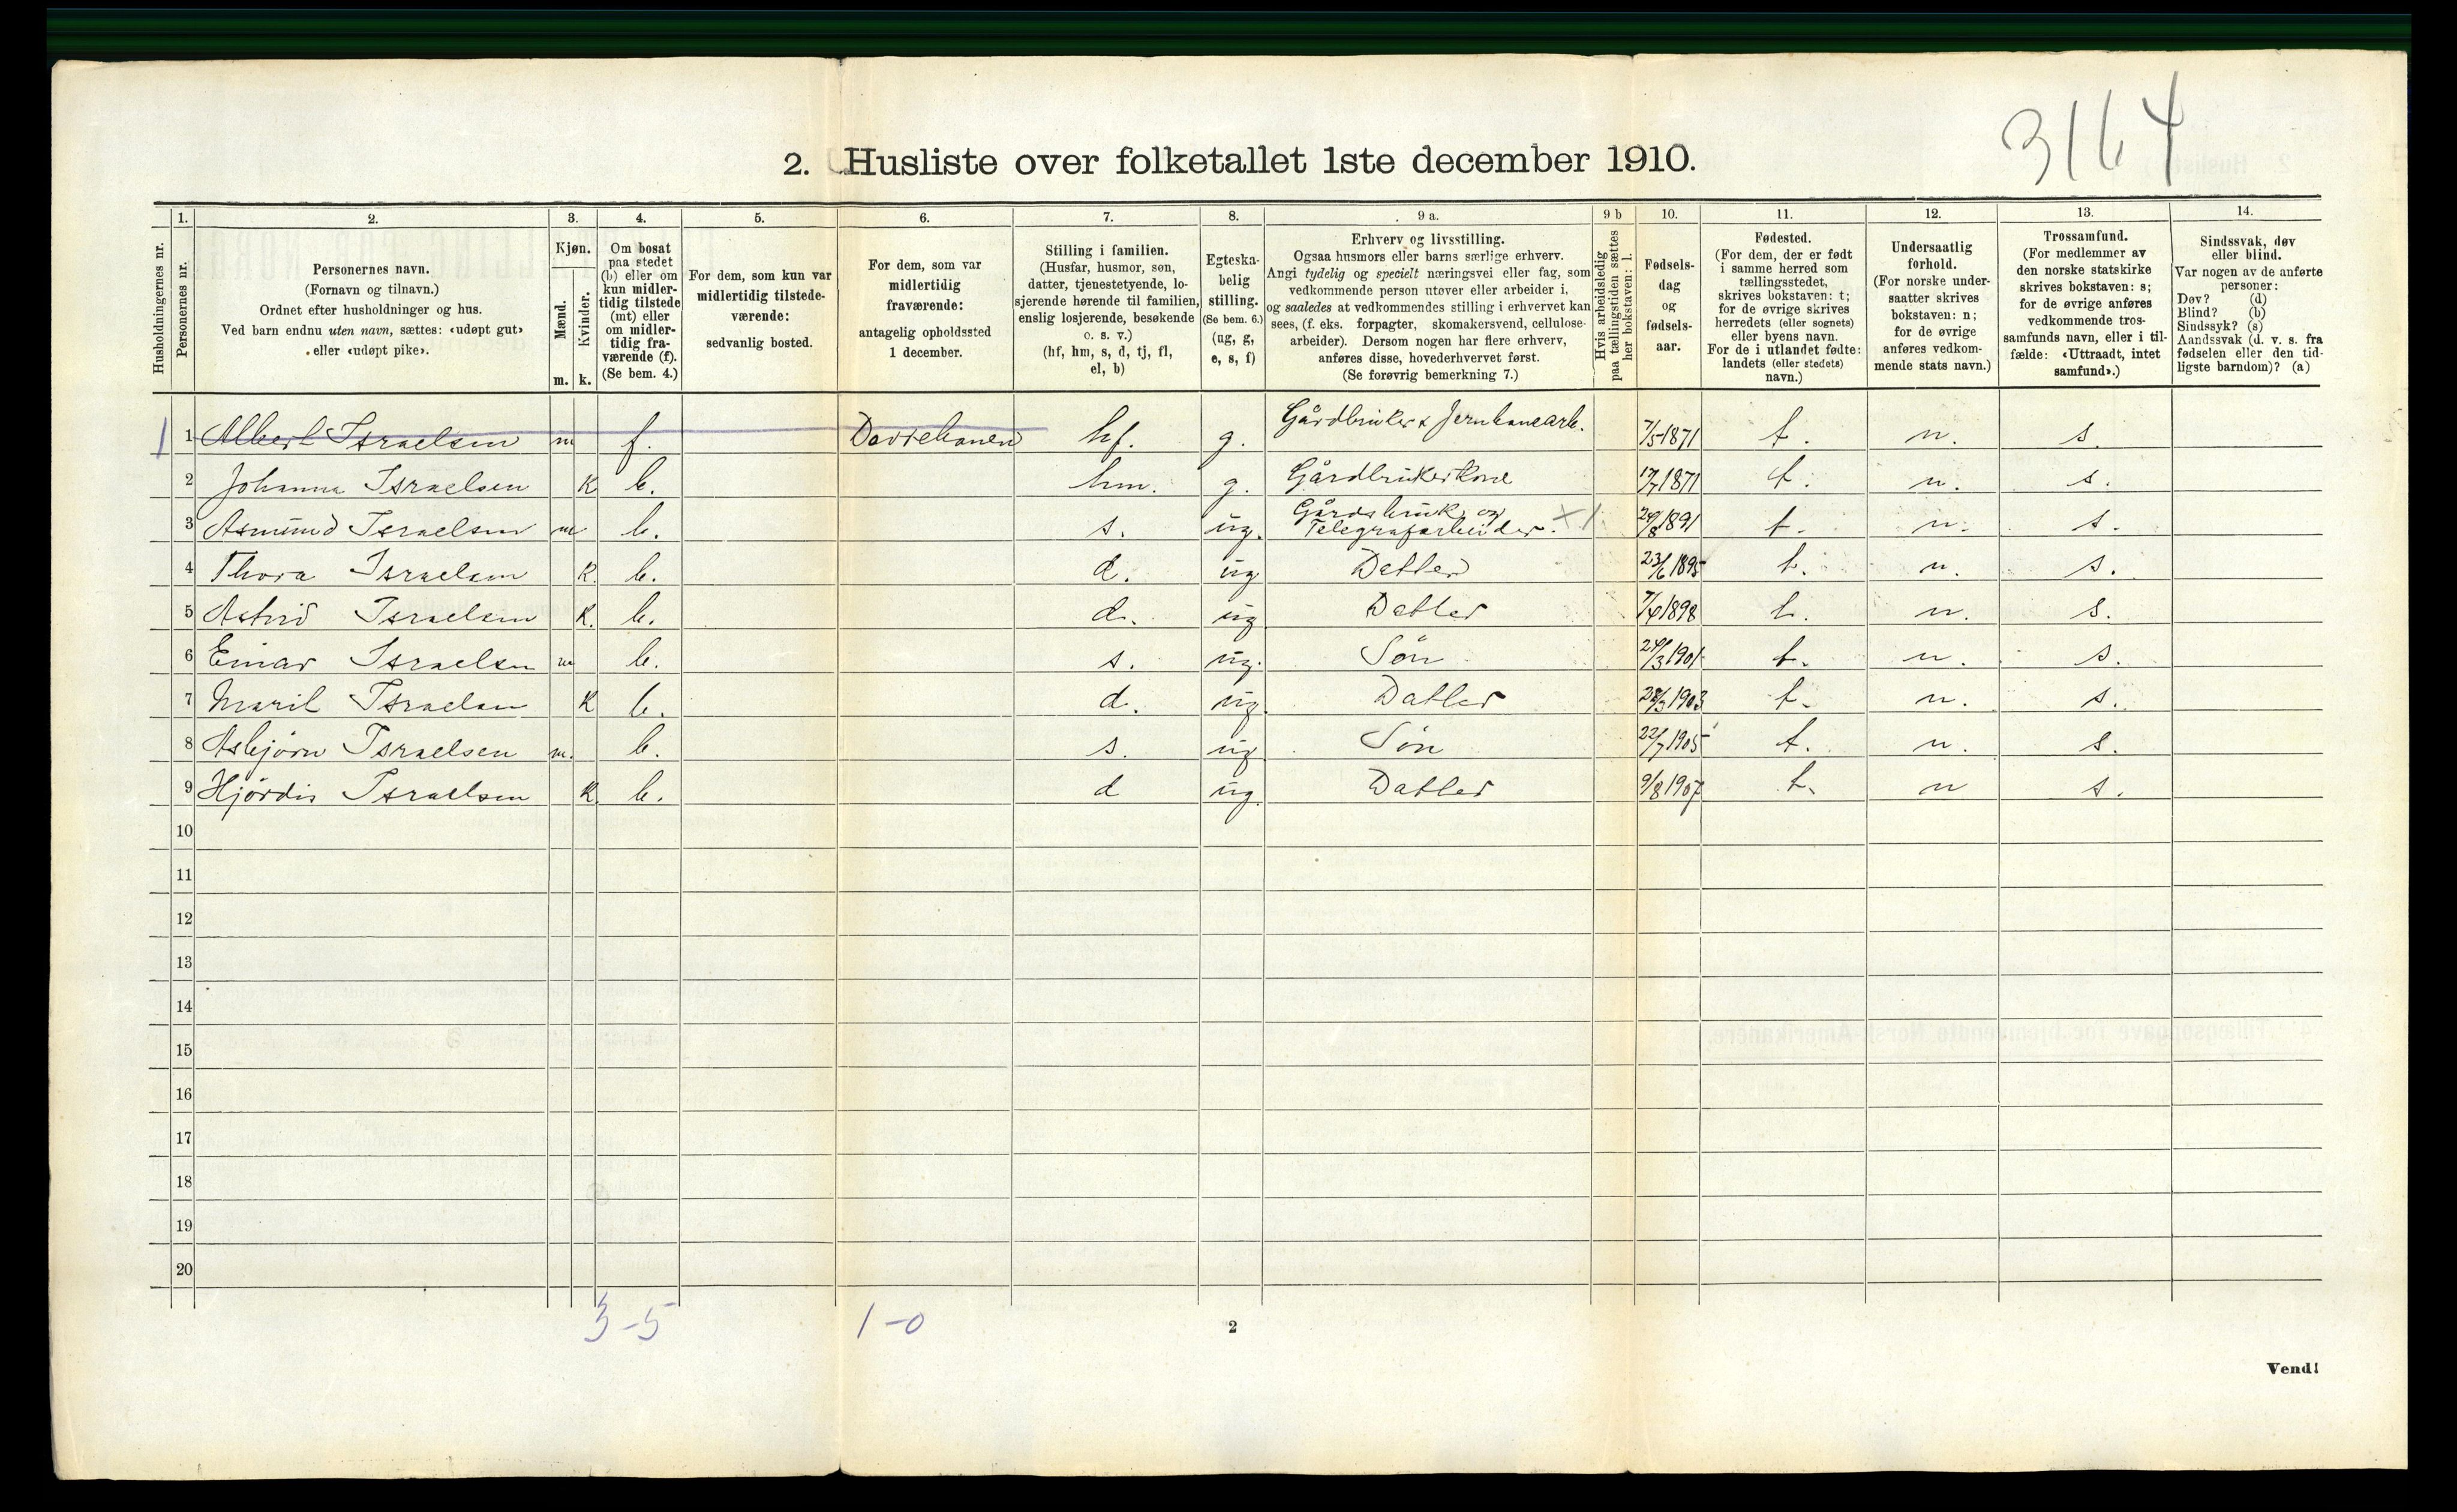 3164
2. Husliste over folketallet 1ste december 1910.
Husholdningernes nr.
1.
Personernes nr.
2.
Personernes navn.
(Fornavn og tilnavn.)
Ordnet efter husholdninger og hus.
Ved barn endnu uten navn, sættes: «udøpt gut»
eller «udøpt pike».
3.
Kjøn.
Mænd.
Kvinder.
m. k.
4.
Om bosat
paa stedet
(b) eller om
kun midler-
tidig tilstede
(mt) eller
om midler-
tidig fra-
værende (f).
(Se bem. 4.)
5.
For dem, som kun var
midlertidig tilstede-
værende:
sedvanlig bosted.
6.
For dem, som var
midlertidig
fraværende:
antagelig opholdssted
1 december.
7.
Stilling i familien.
(Husfar, husmor, søn,
datter, tjenestetyende, lo-
sjerende hørende til familien,
enslig losjerende, besøkende
o. s. v.)
(hf, hm, s, d, tj, fl,
el, b)
8.
Egteska-
belig
stilling.
(Se bem. 6.)
(ug, g,
e, s, f)
9 a.
Erhverv og livsstilling.
Ogsaa husmors eller barns særlige erhverv.
Angi tydelig og specielt næringsvei eller fag, som
vedkommende person utøver eller arbeider i,
og saaledes at vedkommendes stilling i erhvervet kan
sees, (f. eks. forpagter, skomakersvend, cellulose-
arbeider). Dersom nogen har flere erhverv,
anføres disse, hovederhvervet først.
(Se forøvrig bemerkning 7.)
9 b
Hvis arbeidsledig
paa tællingstiden sættes
her bokstaven: l.
10.
Fødsels-
dag
og
fødsels-
aar.
11.
Fødested.
(For dem, der er født
i samme herred som
tællingsstedet,
skrives bokstaven: t;
for de øvrige skrives
herredets (eller sognets)
eller byens navn.
For de i utlandet fødte:
landets (eller stedets)
navn.)
12.
Undersaatlig
forhold.
(For norske under-
saatter skrives
bokstaven: n;
for de øvrige
anføres vedkom-
mende stats navn.)
13.
Trossamfund.
(For medlemmer av
den norske statskirke
skrives bokstaven: s;
for de øvrige anføres
vedkommende tros-
samfunds navn, eller i til-
fælde: «Uttraadt, intet
samfund».)
14.
Sindssvak, døv
eller blind.
Var nogen av de anførte
personer:
Døv? (d)
Blind? (b)
Sindssyk? (s)
Aandssvak (d. v. s. fra
fødselen eller den tid-
ligste barndom)? (a)
1 1 Albert Israelsen m f. Dovrebanen hf. g. Gårdbruker & Jernbanearb. 7/5 1871 t. n. s.
2 Johanna Israelsen K b. hm. g. Gårdbrukerkone 17/7 1871 t. n. s.
3 Asmund Israelsen m b. s. ug. Gårdsbruk og Telegrafarbeider. 1891 t. n. s.
4 Thora Israelsen K. b. d. ug Datter 23/6 1895 t. n. s.
5 Astrid Israelsen K. b. d. ug Datter 1898 t. n. s.
6 Einar Israelsen m b. s. ug. Søn 1901 t. n. s.
7 Marit Israelsen K b. d. ug. Datter 28/3 1903 t. n. s.
8 Asbjørn Israelsen m. b. s. ug Søn 22/7 1905 t. n. s.
9 Hjørdis Israelsen K. b. d ug. Datter 9/8 1907 t. n s.
10
11
12
13
14
15
16
17
18
19
20
3-5 1-0
2
Vend!